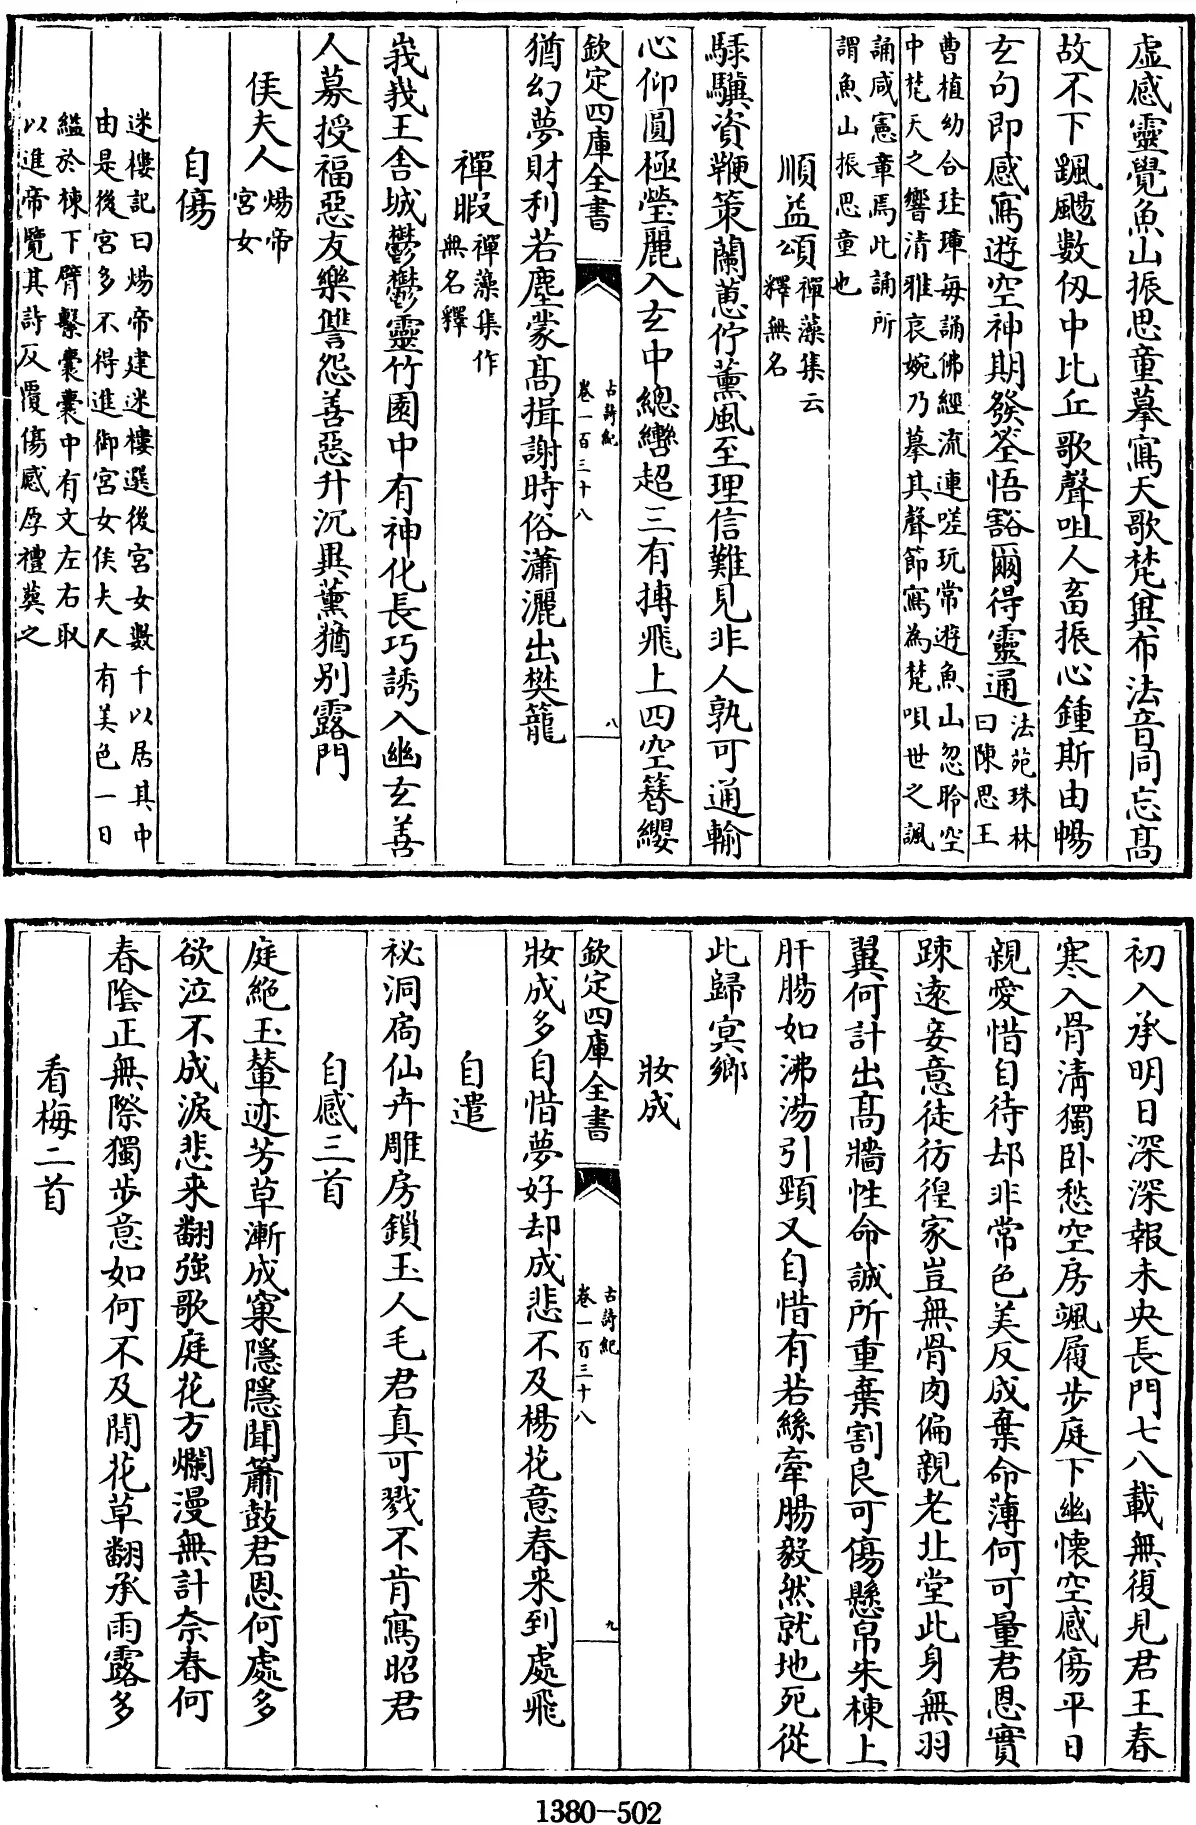 虛感靈覺魚山振思童摹寫天歌梵兾布法音同忘髙
故不下䬃颺數仭中比丘歌聲呾人畜振心鍾斯由暢
玄句即感寫遊空神期發筌悟豁爾得靈通法苑珠林
曰陳思王
曹植幼含珪璋每誦佛經流連嗟玩常遊魚山忽聆空
中梵天之響清雅哀婉乃摹其聲節寫為梵唄世之諷
誦咸憲章焉此誦所
謂魚山振思童也
順益頌禪藻集云
釋無名
騄驥資鞭策蘭蕙佇薰風至理信難見非人孰可通輸
心仰圓極瑩麗入玄中總轡超三有摶飛上四空簪纓
欽定四庫全書
古詩紀
卷一百三十八
八
猶幻夢財利若塵蒙髙揖謝時俗瀟灑出樊籠
禪暇禪藻集作
無名釋
峩峩王舍城鬱鬱靈竹園中有神化長巧誘入幽玄善
人募授福惡友樂讐怨善惡升沉異薰猶别露門
侯夫人煬帝
宮女
自傷
迷樓記曰煬帝建迷樓選後宮女數千以居其中
由是後宮多不得進御宮女侯夫人有美色一日
縊於棟下臂繫囊囊中有文左右取
以進帝覽其詩反覆傷感厚禮葬之
初入承明日深深報未央長門七八載無復見君王春
寒入骨清獨卧愁空房颯履步庭下幽懷空感傷平日
親愛惜自待却非常色美反成棄命薄何可量君恩實
踈遠妾意徒彷徨家豈無骨肉偏親老北堂此身無羽
翼何計出髙牆性命誠所重棄割良可傷懸帛朱棟上
肝腸如沸湯引頸又自惜有若絲牽腸毅然就地死從
此歸冥鄉
妝成
欽定四庫全書
古詩紀
卷一百三十八
九
妝成多自惜夢好却成悲不及楊花意春来到處飛
自遣
祕洞扄仙卉雕房鎖玉人毛君真可戮不肯寫昭君
自感三首
庭絶玉輦迹芳草漸成窠隱隱聞簫鼓君恩何處多
欲泣不成淚悲来翻強歌庭花方爛漫無計奈春何
春隂正無際獨步意如何不及閒花草翻承雨露多
看梅二首
1380—502